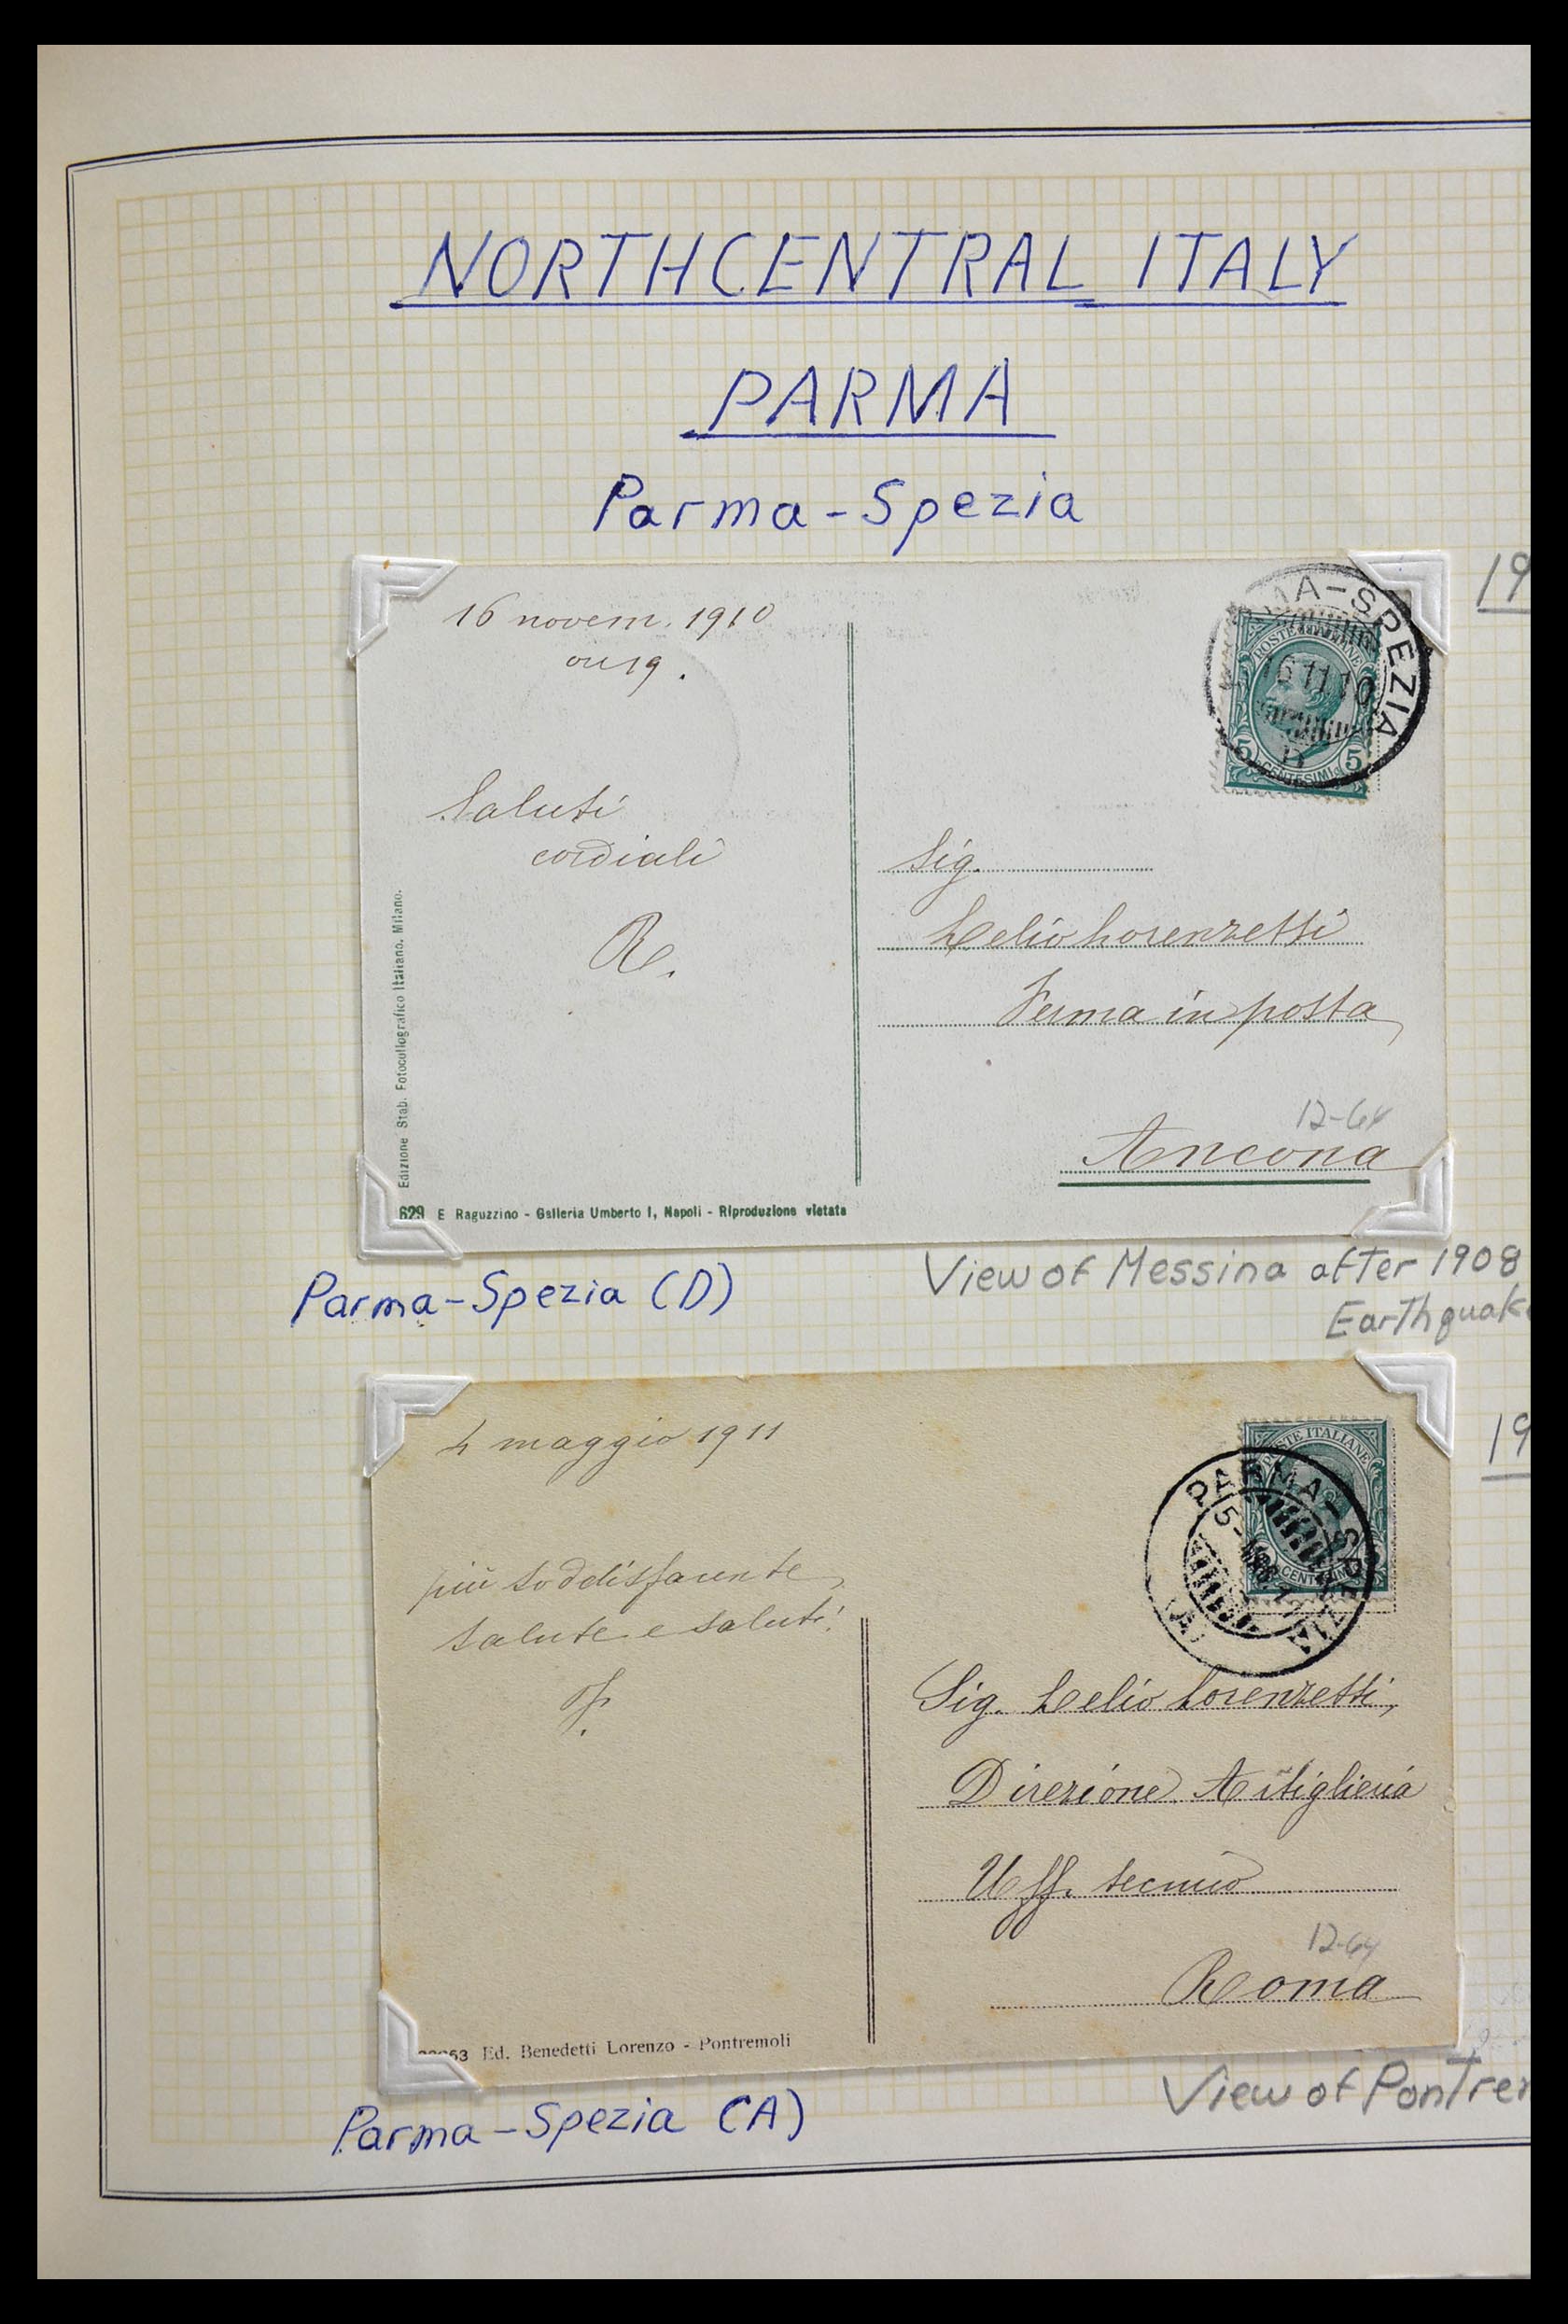 NORTHCENTRAL ITALY
PARMA
Parma-Spezia
19
16 novem. 1910
ore 19.
MA-SPEZIA
16 11 10
POSTE ITALIANE
5 CENTESIMI 5
Saluti
cordiali
R.
Sig.
Lelio Lorenzetti
Ferma in posta
12-64
Ancona
Edizione Stab. Fotocollografico Italiano. Milano.
629 E Raguzzino - Galleria Umberto I, Napoli - Riproduzione vietata
Parma-Spezia (D)
View of Messina after 1908
Earthquake
19
4 maggio 1911
POSTE ITALIANE
PARMA-SPEZIA
(A)
più soddisfacente,
salute e saluti!
Sig. Lelio Lorenzetti,
Direzione Artiglieria
Uff. tecnico
12-64
Roma
53 Ed. Benedetti Lorenzo - Pontremoli
Parma-Spezia (A)
View of Pontrem